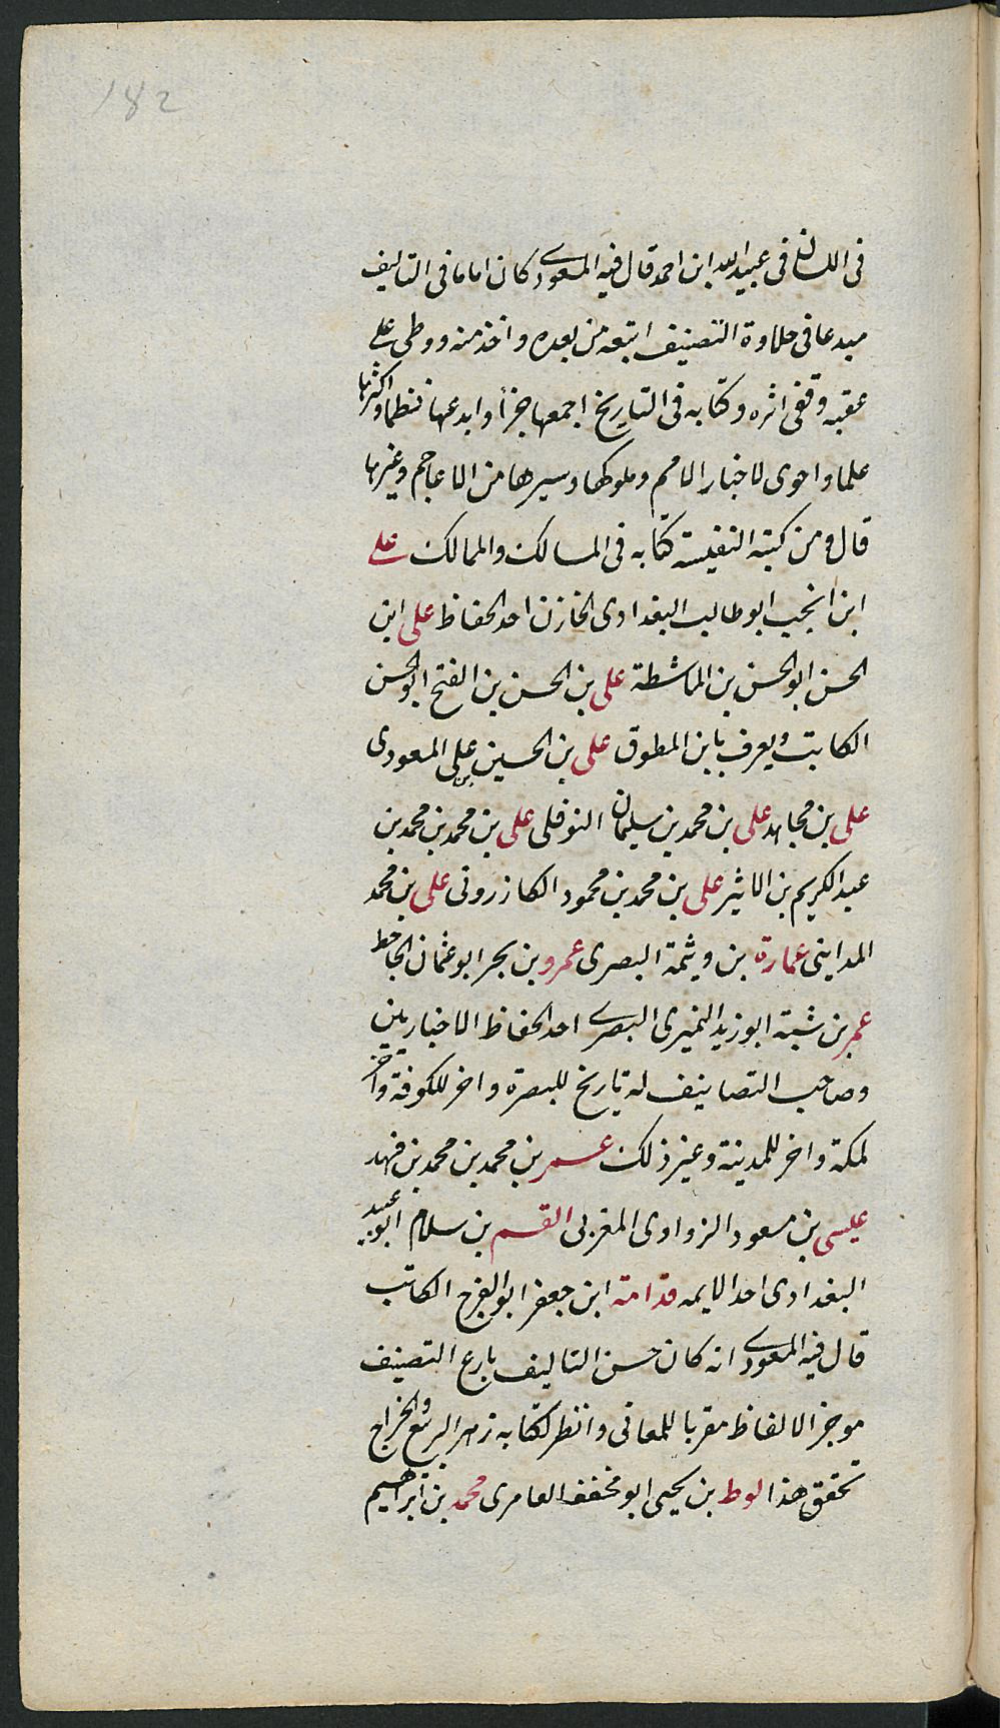 182
فى اللسان فى عبيد الله ابن احمد قال فيه المسعودى كان اماما فى التاليف
مبدعا فى حلاوة التصنيف اتبعه من بعده واخذ منه ووطى على
عقبه وقفى اثره وكتابه فى التاريخ اجمعها جزأ وابدعها نظما واكثرها
علما واحوى لاخبار الامم وملوكها وسيرها من الاعاجم وغيرها
قال ومن كتبه النفيسة كتابه فى المسالك والممالك على
ابن انجب ابو طالب البغدادى الخازن احد الحفاظ على ابن
الحسن ابو الحسن بن الماشطة على بن الحسن بن الفتح ابو الحسن
الكاتب ويعرف بابن المطوق على بن الحسين بن على المسعودى
على بن مجاهد على بن محمد بن سليمان النوفلى على بن محمد بن محمد بن
عبد الكريم بن الاثير على بن محمد بن محمود الكازرونى على بن محمد
المداينى عمارة بن وثيمة البصرى عمرو بن بحر ابو عثمان الجاحظ
عمر بن شبة ابو زيد النميرى البصرى احد الحفاظ الاخباريين
وصاحب التصانيف له تاريخ للبصرة واخر للكوفة واخر
لمكة واخر للمدينة وغير ذلك عمر بن محمد بن محمد بن فهد
عيسى بن مسعود الزواوى المغربى القسم بن سلام ابو عبيد
البغدادى احد الايمه قدامة ابن جعفر ابو الفرج الكاتب
قال فيه المسعودى انه كان حسن التاليف بارع التصنيف
موجز الالفاظ مقربا للمعانى وانظر لكتابه زهر الربيع والخراج
تحقق هذا لوط بن يحيى ابو مخنف العامرى محمد بن ابراهيم